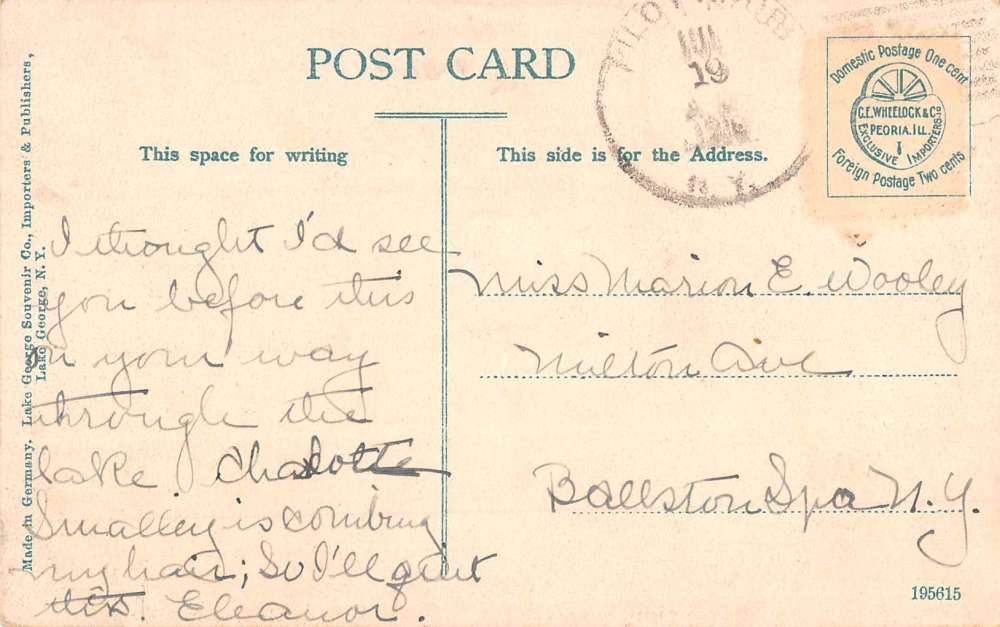 POST CARD
This space for writing
This side is for the Address.
Made in Germany. Lake George Souvenir Co., Importers & Publishers,
Lake George, N. Y.
19
N. Y.
Domestic Postage One cent
C.E. WHEELOCK & Co
PEORIA. ILL.
EXCLUSIVE IMPORTERS
Foreign Postage Two cents
I thought I'd see
you before this
on your way
through the
lake Charlotte
Smalley is combing
my hair; So I'll quit
this. Eleanor.
Miss Marion E. Wooley
Milton Ave
Ballston Spa N.Y.
195615